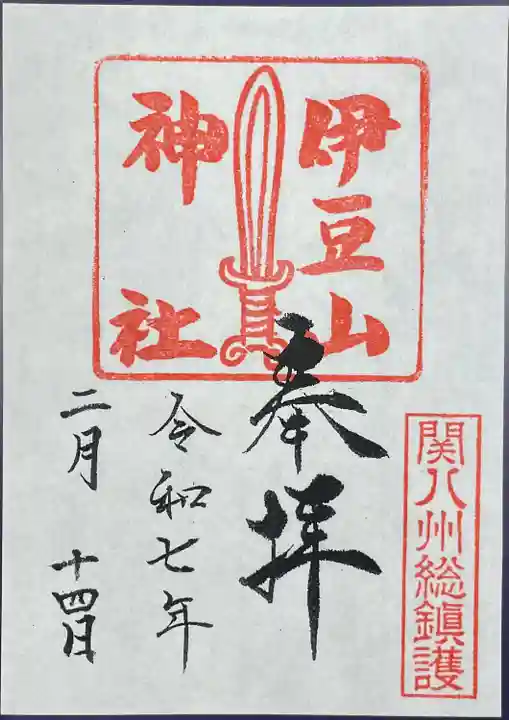 伊豆山
神社
奉拝
関八州総鎮護
令和七年
二月 十四日